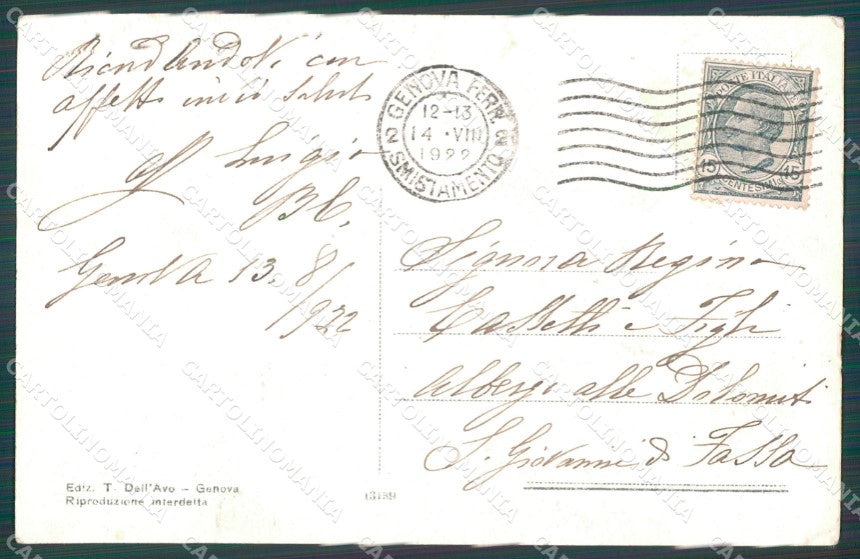 Ricordandovi con
affetto invio saluti
Luigi
Genova 13. 8/
922
GENOVA FERR.
12-13
14 · VIII
1922
2 SMISTAMENTO 2
POSTE ITALIANE
15 15
CENTESIMI
Signora Regina
Casletti e Figli
Albergo alle Dolomiti
S. Giovanni di Fassa
Ediz. T. Dell'Avo – Genova
Riproduzione interdetta
13199
CARTOLINOMANIA